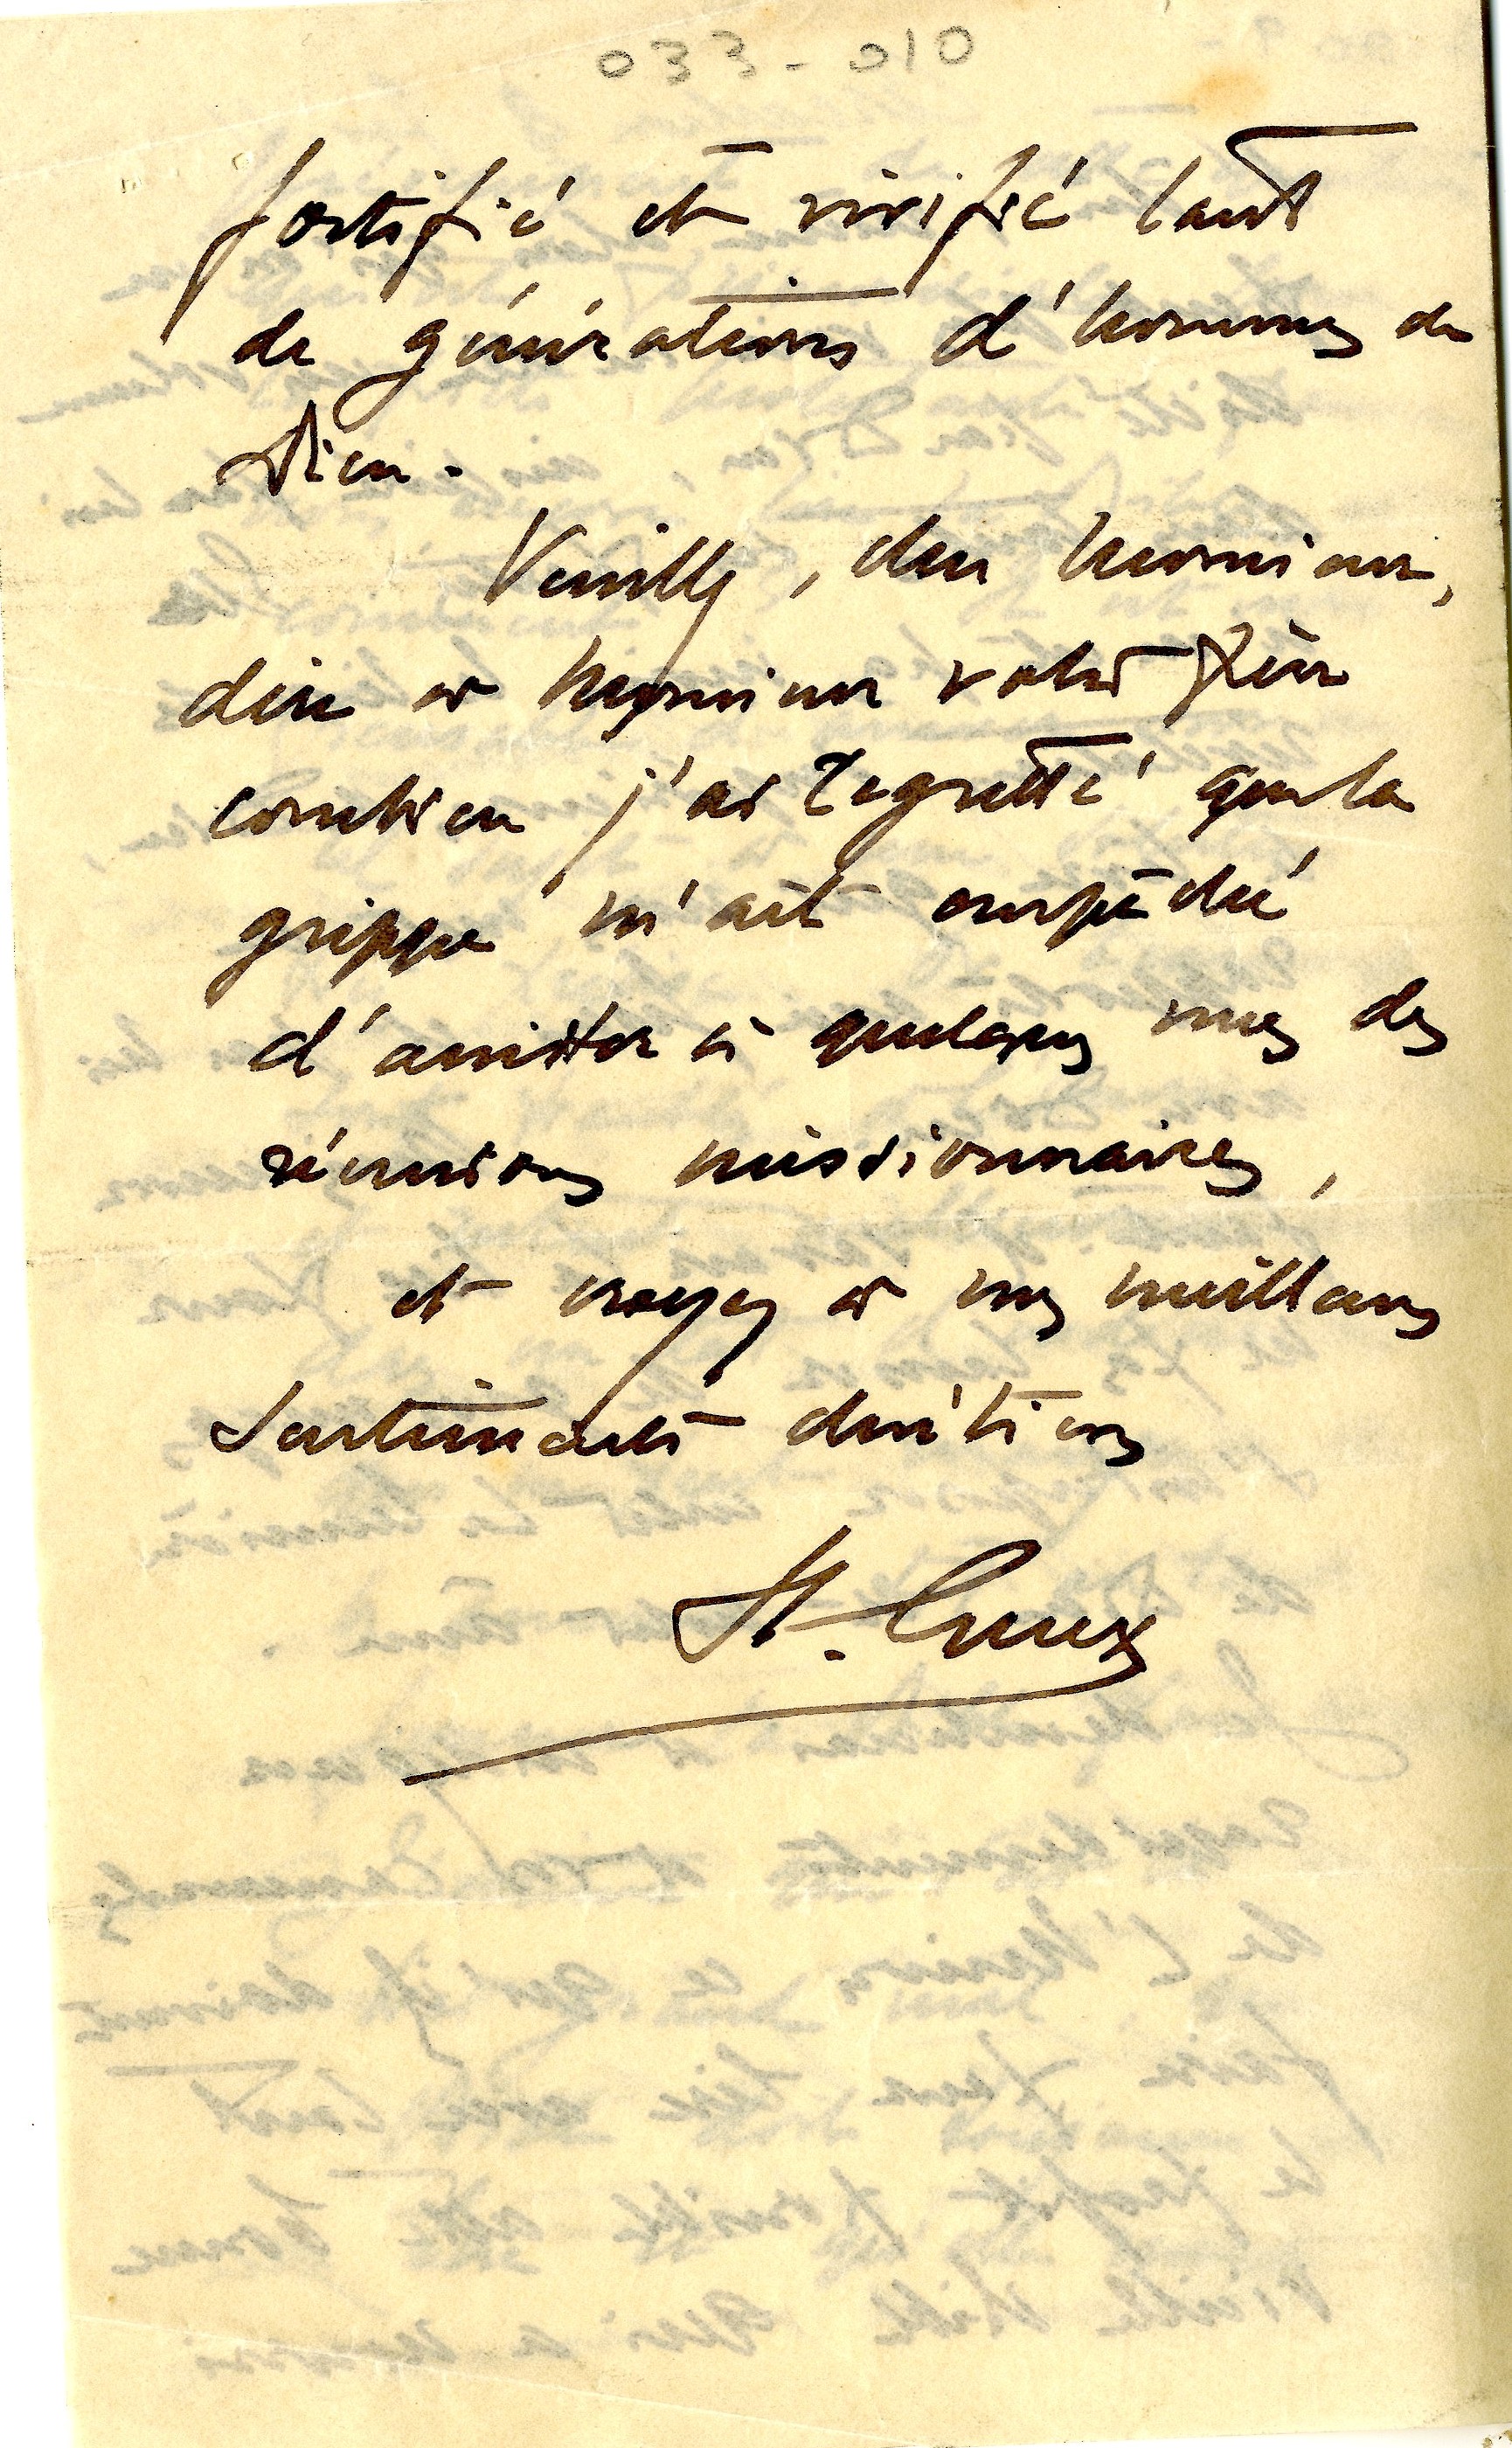 033-010
fortifié et vivifié tant
de générations d'hommes de
Dieu.
Veuillez, cher Monsieur,
dire à Monsieur votre Père
combien j'ai regretté que la
grippe m'ait empêché
d'assister à quelques unes des
réunions missionnaires,
et croyez à mes meilleurs
sentiments chrétiens